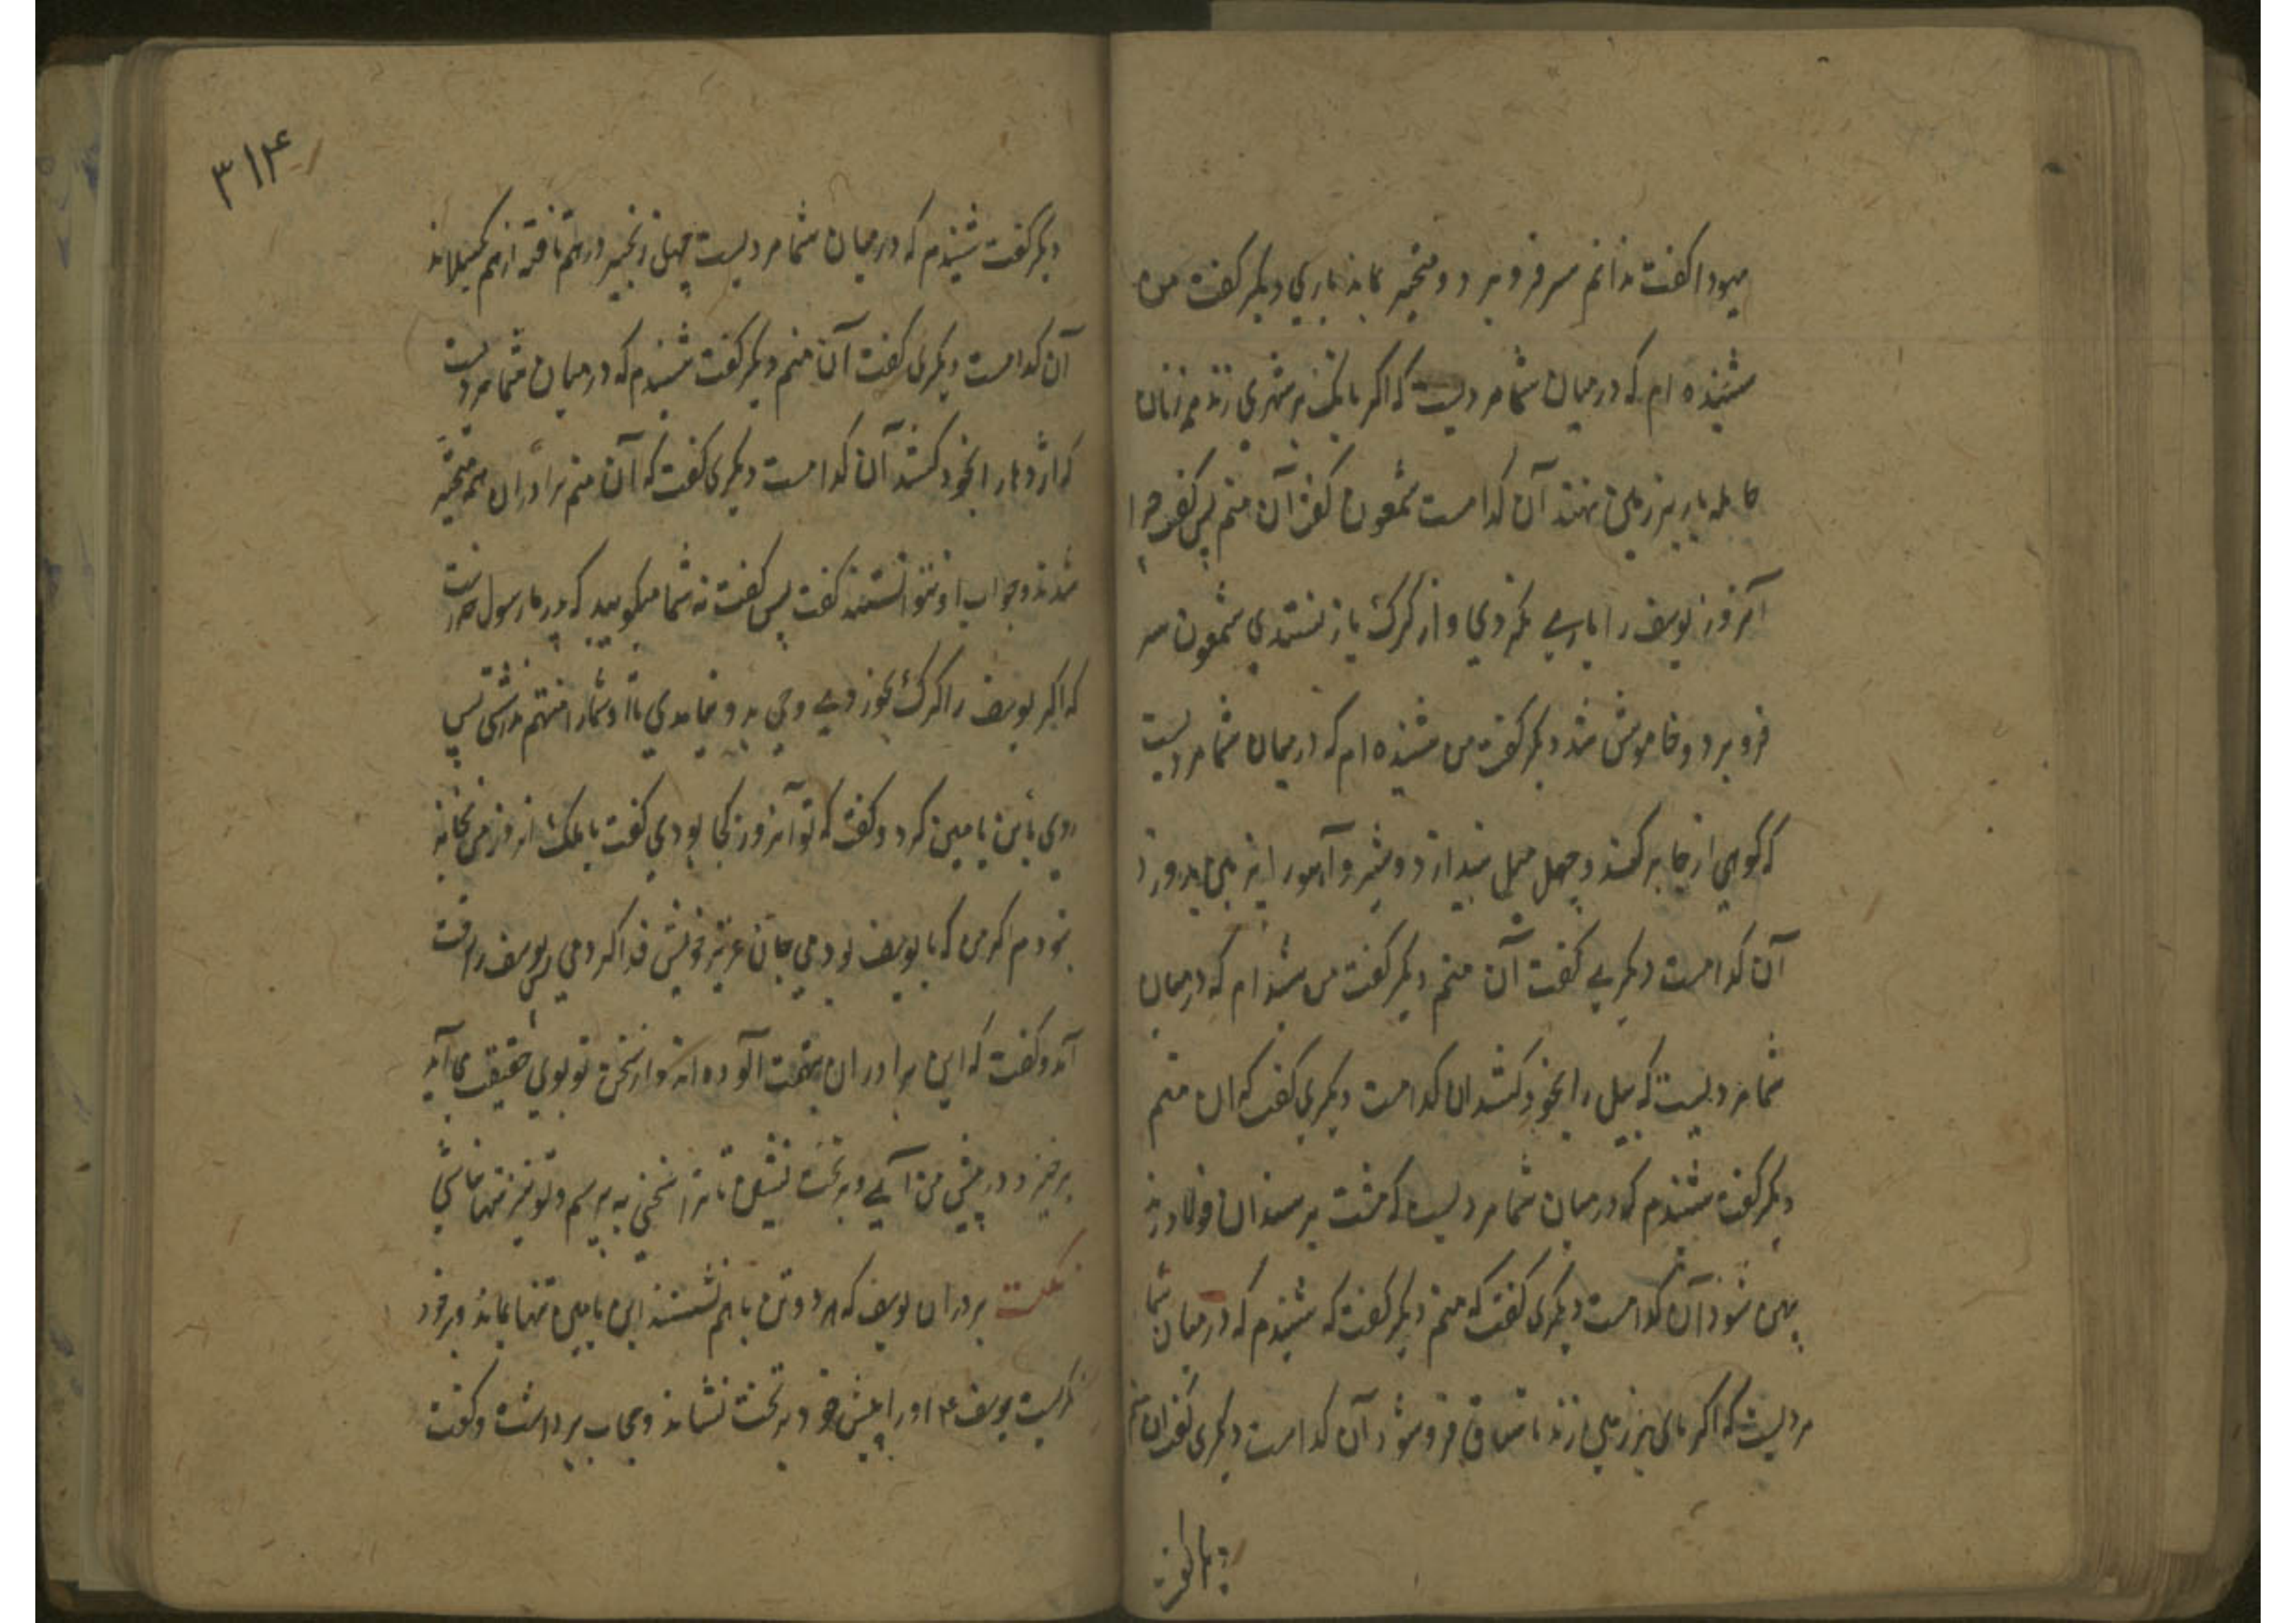 یهودا گفت ندانم سر فرو برد و متحیر بماند باری دیگر گفت من
شنیده ام که در میان شما مردیست که اگر بانک بر شهری زند هر زنان
حامله بار بر زمین نهند آن کدامست شمعون گفت آن منم پس گفت چرا
آنروز یوسف را یاری نکردی و از گرگ باز نستدی شمعون سر
فرو برد و خاموش شد دیگر گفت من شنیده ام که در میان شما مردیست
که کوهی از جا بر کند و چهل میل بیندازد و شیر و آهو را بر هم بدرد
آن کدامست دیگری گفت آن منم دیگر گفت من شنیده ام که در میان
شما مردیست که پیل را بخود کشد ان کدامست دیگری گفت که ان منم
دیگر گفت شنیدم که در میان شما مردیست که مشت بر سندان فولاد زند
پهن شود آن کدامست دیگری گفت که منم دیگر گفت که شنیدم که در میان شما
مردیست که اگر پای بر زمین زند تا ساق فرو شود آن کدامست دیگری گفت ان منم
دیگر گفت
۳۱۴
دیگر گفت شنیدم که در میان شما مردیست چهل زنجیر در هم تافته از هم بگسلاند
آن کدامست دیگری گفت آن منم دیگر گفت شنیدم که در میان شما مردیست
که اژدها را بخود کشد آن کدامست دیگری گفت که آن منم برادران همه متحیر
شدند و جواب او نتوانستند گفت پس گفت نه شما میگویید که پدر ما رسول خداست
که اگر یوسف را گرگ بخوردی وحی بدو بیامدی تا او شمارا متهم نداشتی پس
روی بابن یامین کرد و گفت که تو آنروز کجا بودی گفت یا ملک انروز من بخانه
بودم اگر من که با یوسف بودمی جان عزیز خویش فدا کردمی یوسف را رقت
آمد و گفت که این برادران بتهمت آلوده اند و از سخن تو بوی حقیقت می آید
برخیز و در پیش من آی و بر تخت بنشین تا ترا سخنی به پرسم و تو نیز تنها نباشی
نکت بردران یوسف که هر دو تن باهم نشستند ابن یامین تنها بماند و بر خود
بگریست یوسف ع اورا پیش خود بر تخت نشاند و حجاب برداشت و گفت